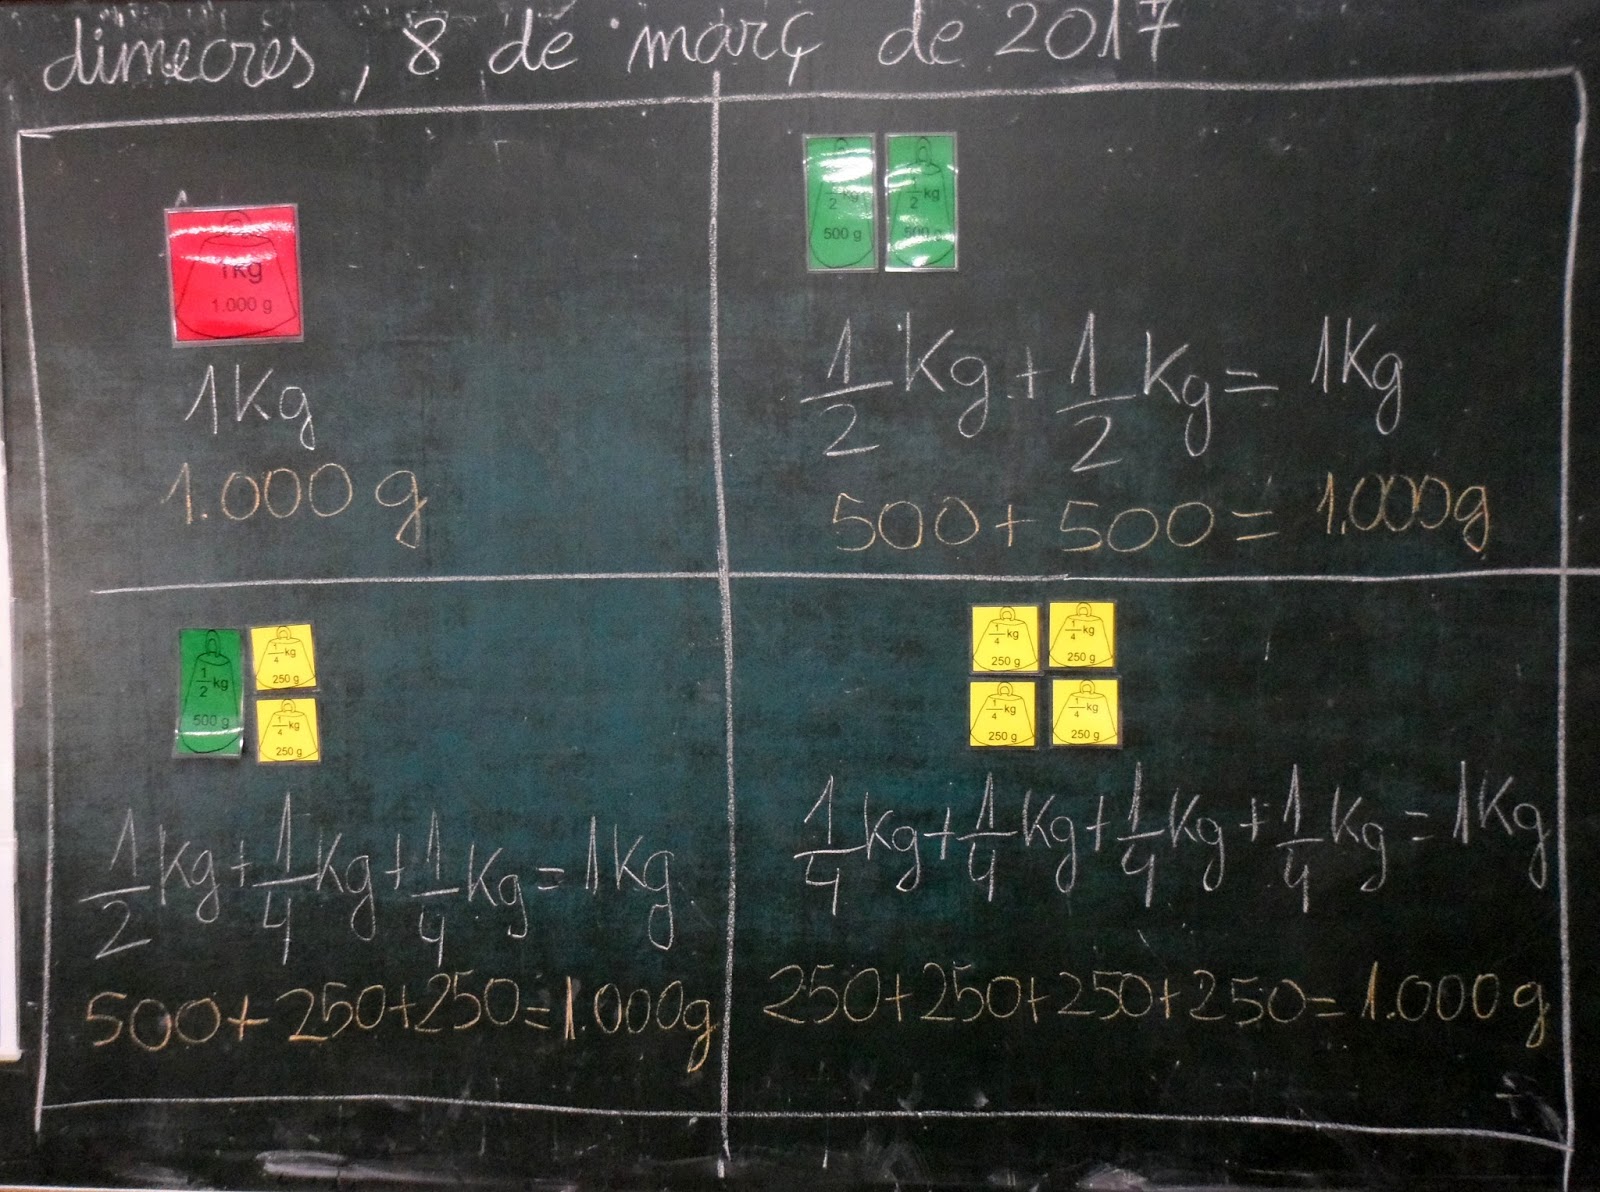 dimecres, 8 de març de 2017
1kg
1.000 g
1Kg
1.000 g
1/2 kg
500 g
1/2 kg
500 g
1/2 Kg + 1/2 Kg = 1Kg
500 + 500 = 1.000g
1/2 kg
500 g
1/4 kg
250 g
1/4 kg
250 g
1/2 Kg + 1/4 Kg + 1/4 Kg = 1Kg
500 + 250 + 250 = 1.000g
1/4 kg
250 g
1/4 kg
250 g
1/4 kg
250 g
1/4 kg
250 g
1/4 Kg + 1/4 Kg + 1/4 Kg + 1/4 Kg = 1Kg
250 + 250 + 250 + 250 = 1.000 g